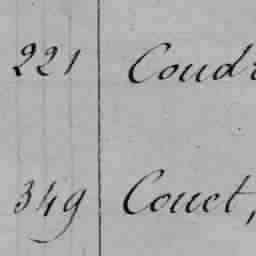 221 Coud
349 Couet,